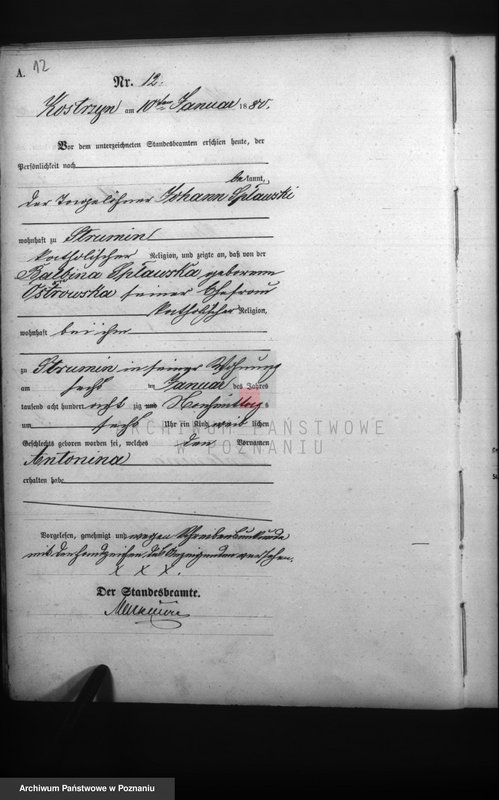 A. 12
Nr. 12.
Kostrzyn am 10ten Januar 1880.
Vor dem unterzeichneten Standesbeamten erschien heute, der
Persönlichkeit nach
bekannt,
der Tagelöhner Johann Spławski
wohnhaft zu Strumin
katholischer Religion, und zeigte an, daß von der
Balbina Spławska geborenen
Ostrowska seiner Ehefrau
katholischer Religion,
wohnhaft bei ihm
zu Strumin in seiner Wohnung
am sechs ten Januar des Jahres
tausend acht hundert acht zig und Nachmittags
um sechs Uhr ein Kind weib lichen
Geschlechts geboren worden sei, welches den Vornamen
Antonina
erhalten habe
ARCHIWUM PAŃSTWOWE
W POZNANIU
Vorgelesen, genehmigt und wegen Schreibensunkunde
mit den Handzeichen des Anzeigenden versehen.
X X X.
Der Standesbeamte.
Archiwum Państwowe w Poznaniu